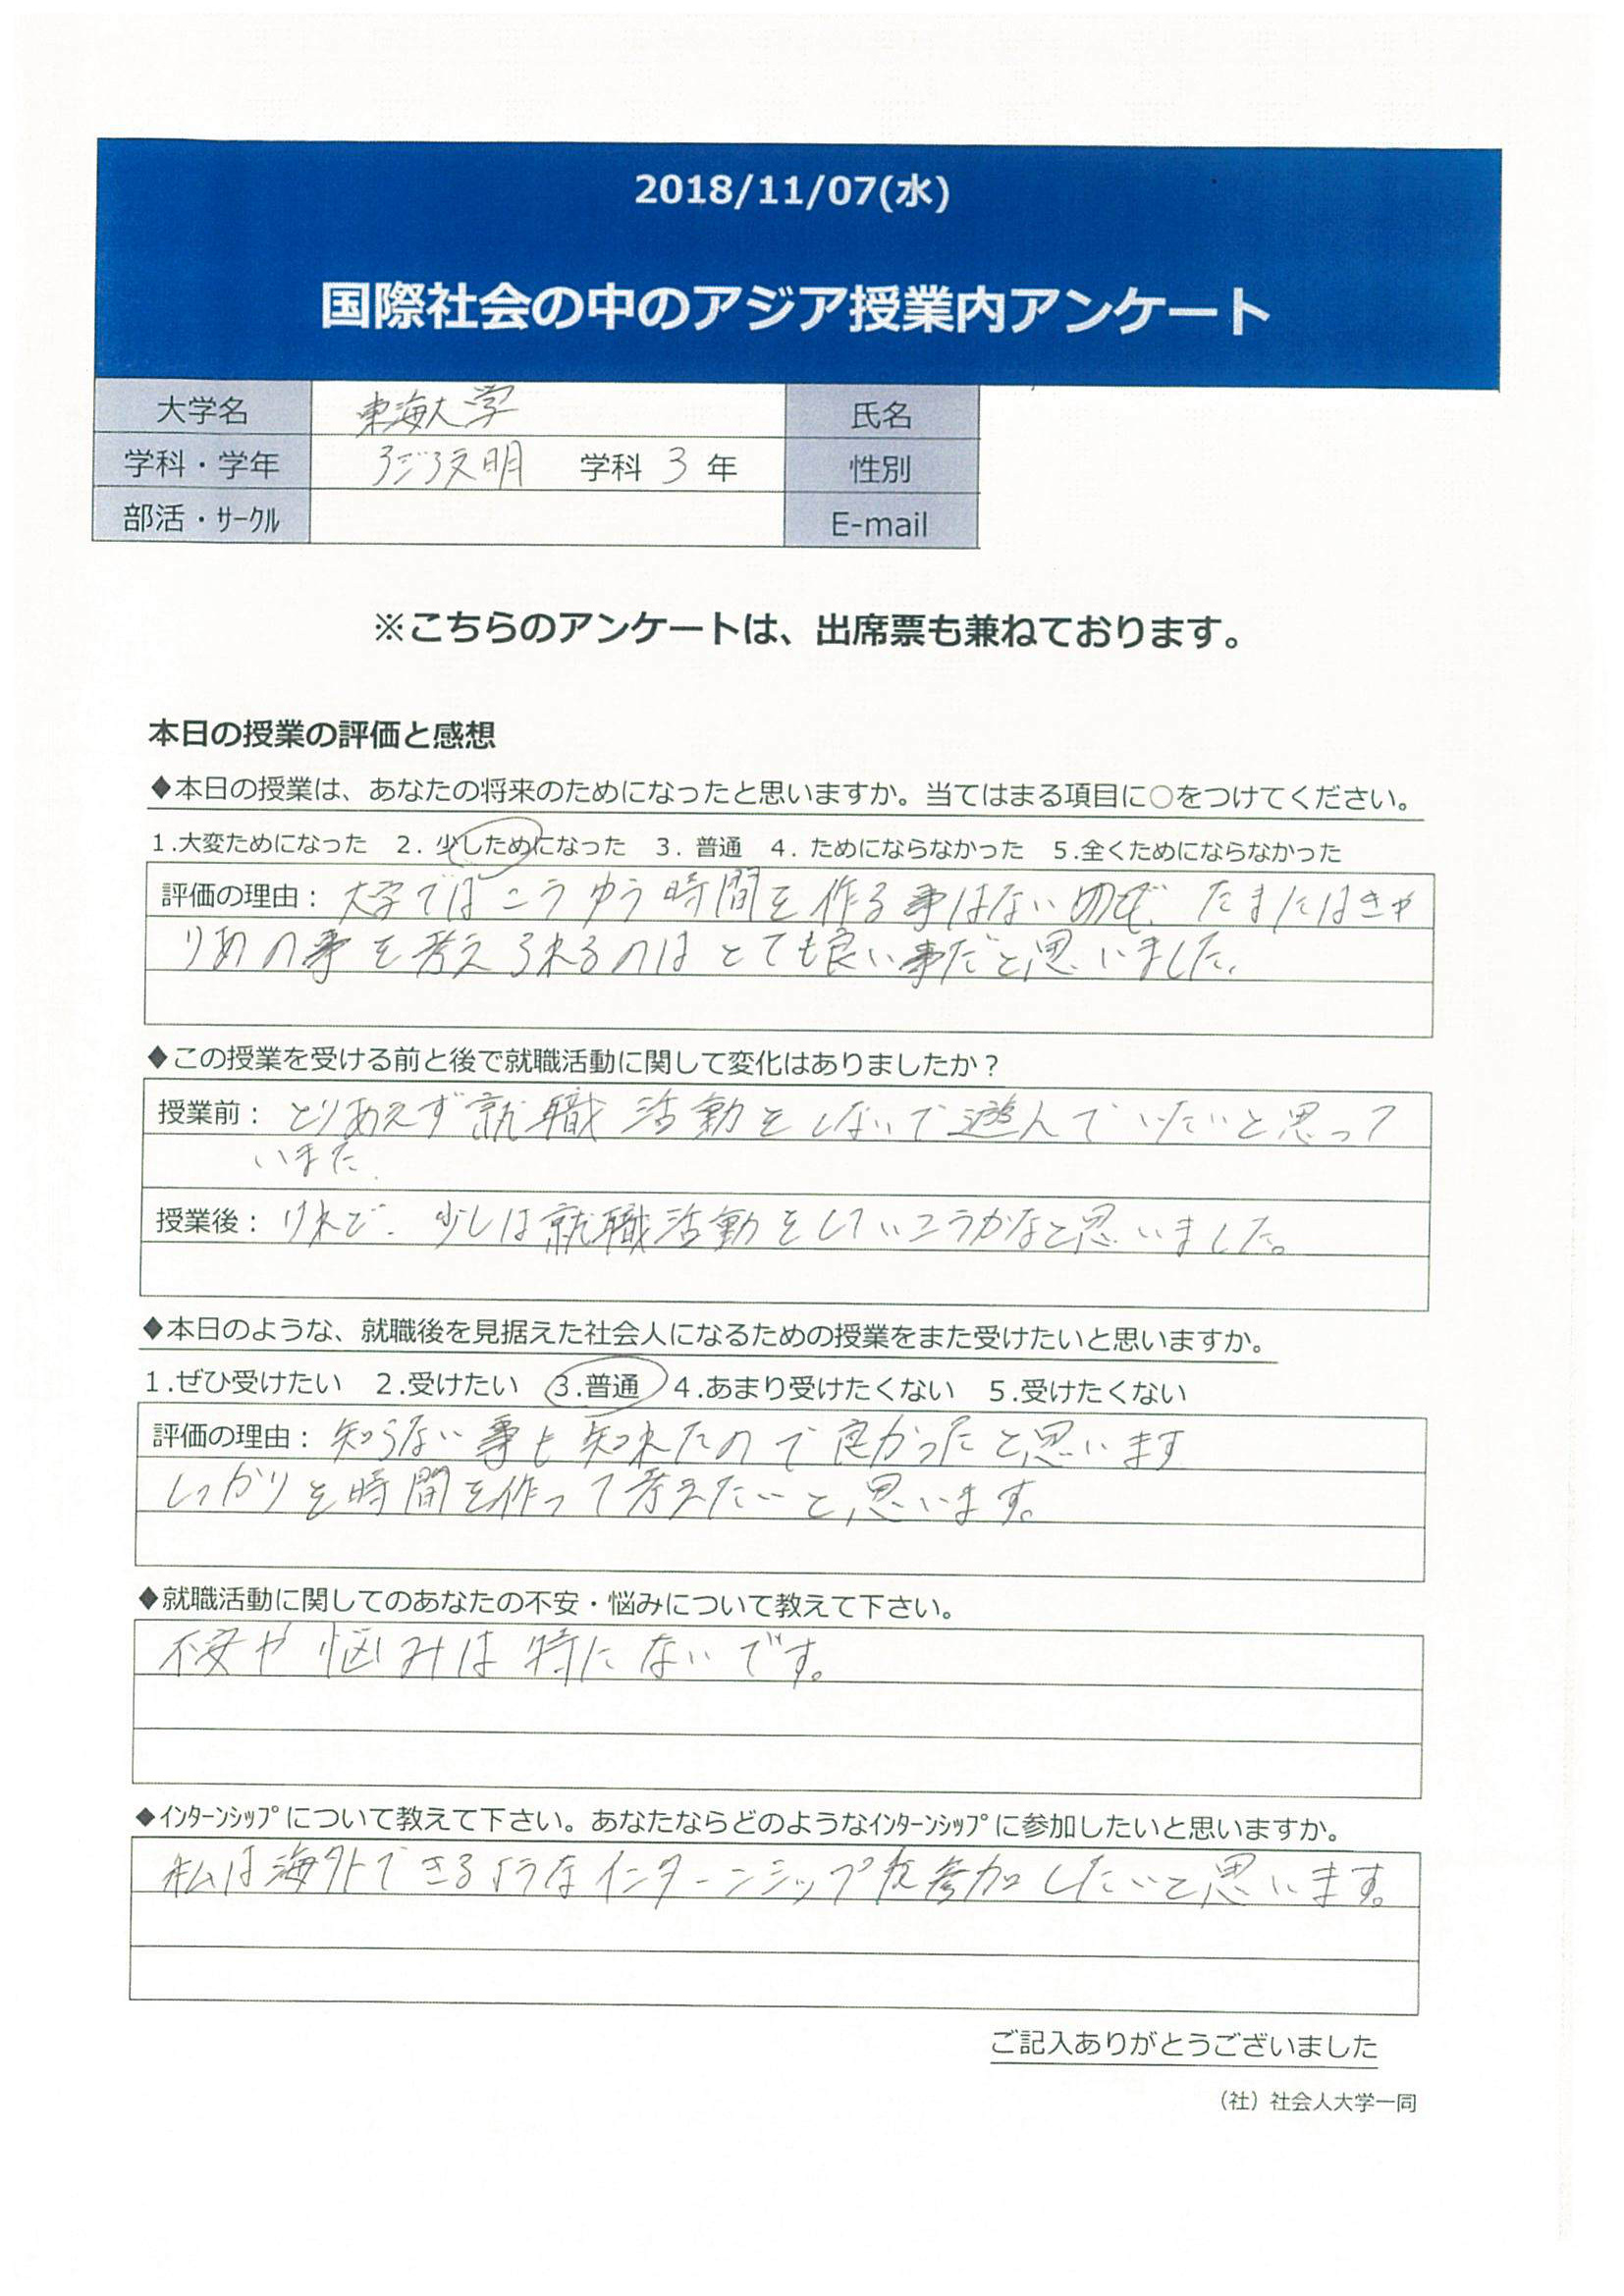 2018/11/07(水)
国際社会の中のアジア授業内アンケート
大学名 東海大学 氏名
学科・学年 アジア文明 学科 3 年 性別
部活・サークル E-mail
※こちらのアンケートは、出席票も兼ねております。
本日の授業の評価と感想
◆本日の授業は、あなたの将来のためになったと思いますか。当てはまる項目に○をつけてください。
1.大変ためになった 2. 少しためになった 3. 普通 4. ためにならなかった 5.全くためにならなかった
評価の理由: 大学ではこうゆう時間を作る事はないので、たまにはきゃ
りあの事を考えろ来るのはとても良い事だと思いました。
◆この授業を受ける前と後で就職活動に関して変化はありましたか？
授業前: とりあえず就職活動をしないで遊んでいたいと思って
いまた.
授業後: けれど、少しは就職活動をしていこうかなと思いました。
◆本日のような、就職後を見据えた社会人になるための授業をまた受けたいと思いますか。
1.ぜひ受けたい 2.受けたい 3.普通 4.あまり受けたくない 5.受けたくない
評価の理由: 知らない事も知れたので良かったと思います
しっかりを時間を作って考えたいと思います。
◆就職活動に関してのあなたの不安・悩みについて教えて下さい。
不安や悩みは特にないです。
◆インターンシップについて教えて下さい。あなたならどのようなインターンシップに参加したいと思いますか。
私は海外できるようなインターンシップ参加したいと思います。
ご記入ありがとうございました
（社）社会人大学一同